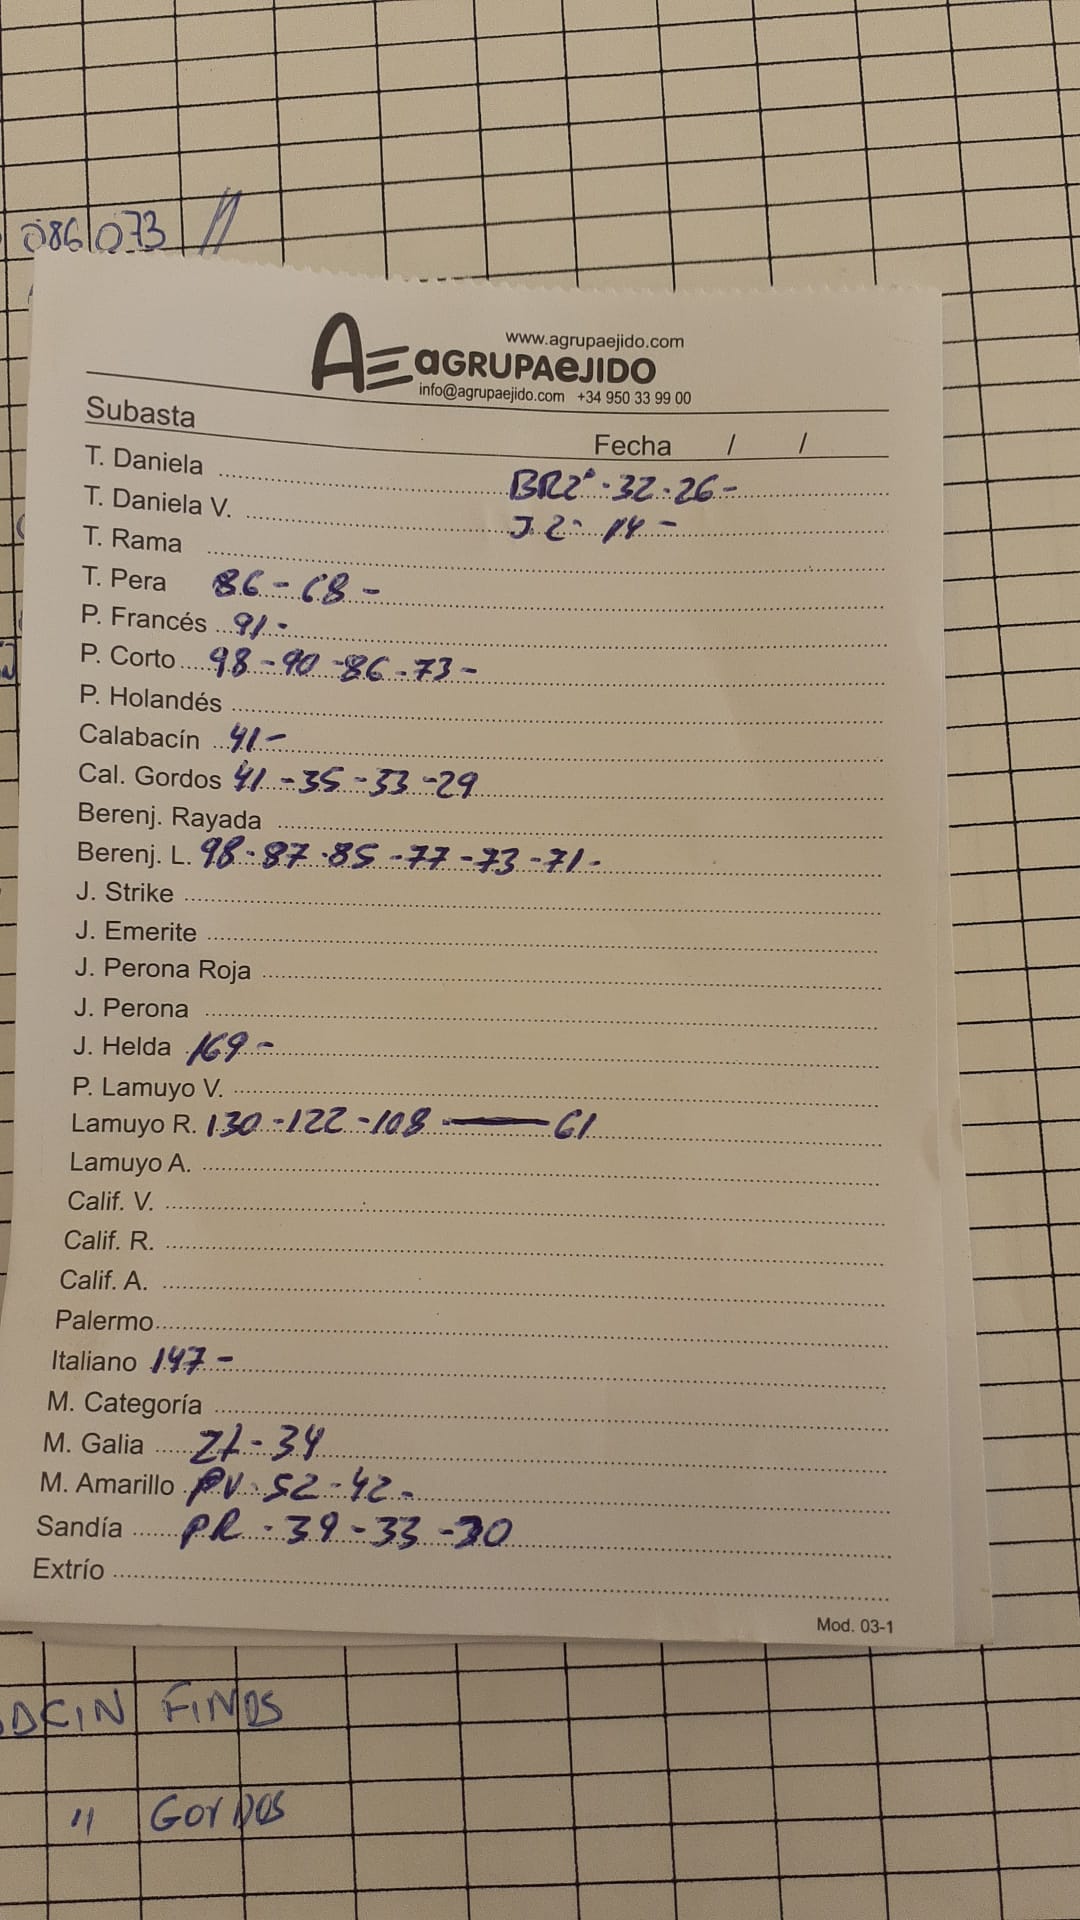 086 073 //
www.agrupaejido.com
AE aGRUPAeJIDO
info@agrupaejido.com +34 950 33 99 00
Subasta
Fecha / /
T. Daniela BR2ª - 32 - 26 -
T. Daniela V. J 2ª 14 -
T. Rama
T. Pera 86 - 68 -
P. Francés 91 -
P. Corto 98 - 90 - 86 - 73 -
P. Holandés
Calabacín 41 -
Cal. Gordos 41 - 35 - 33 - 29
Berenj. Rayada
Berenj. L. 98 - 87 - 85 - 77 - 73 - 71 -
J. Strike
J. Emerite
J. Perona Roja
J. Perona
J. Helda 169 -
P. Lamuyo V.
Lamuyo R. 130 - 122 - 108 — 61
Lamuyo A.
Calif. V.
Calif. R.
Calif. A.
Palermo
Italiano 147 -
M. Categoría
M. Galia - 34
M. Amarillo PV - 52 - 42 -
Sandía PR - 39 - 33 - 30
Extrío
Mod. 03-1
ACIN FINOS
" GORDOS